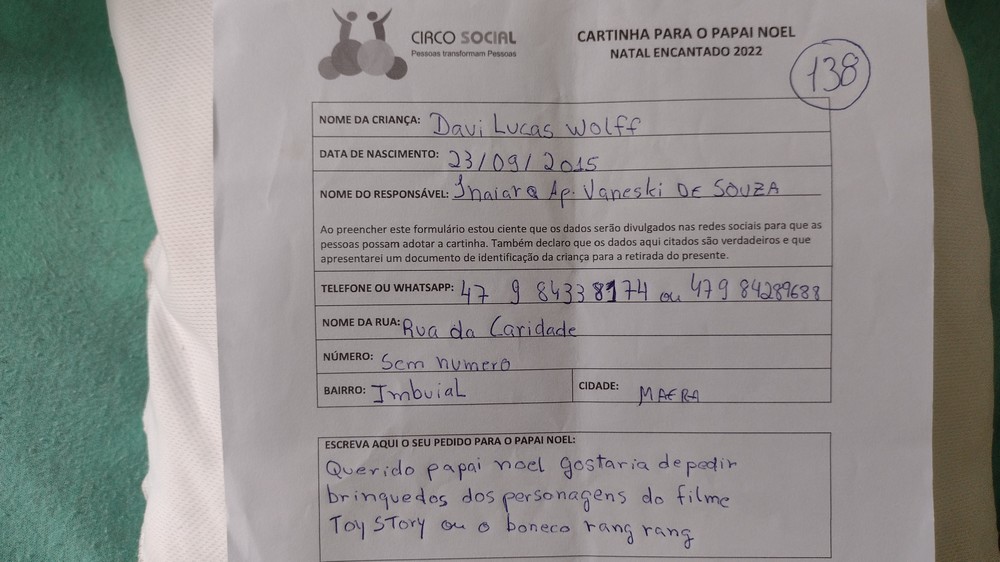 CIRCO SOCIAL
Pessoas transformam Pessoas
CARTINHA PARA O PAPAI NOEL
NATAL ENCANTADO 2022
138
NOME DA CRIANÇA: Davi Lucas Wolff
DATA DE NASCIMENTO: 23/09/2015
NOME DO RESPONSÁVEL: Inaiara Ap. Vaneski DE SOUZA
Ao preencher este formulário estou ciente que os dados serão divulgados nas redes sociais para que as
pessoas possam adotar a cartinha. Também declaro que os dados aqui citados são verdadeiros e que
apresentarei um documento de identificação da criança para a retirada do presente.
TELEFONE OU WHATSAPP: 47 9 84338174 ou 479 84289688
NOME DA RUA: Rua da Caridade
NÚMERO: Sem numero
BAIRRO: Imbuial CIDADE: MAFRA
ESCREVA AQUI O SEU PEDIDO PARA O PAPAI NOEL:
Querido papai noel gostaria de pedir
brinquedos dos personagens do filme
Toy STory ou o boneco rang rang